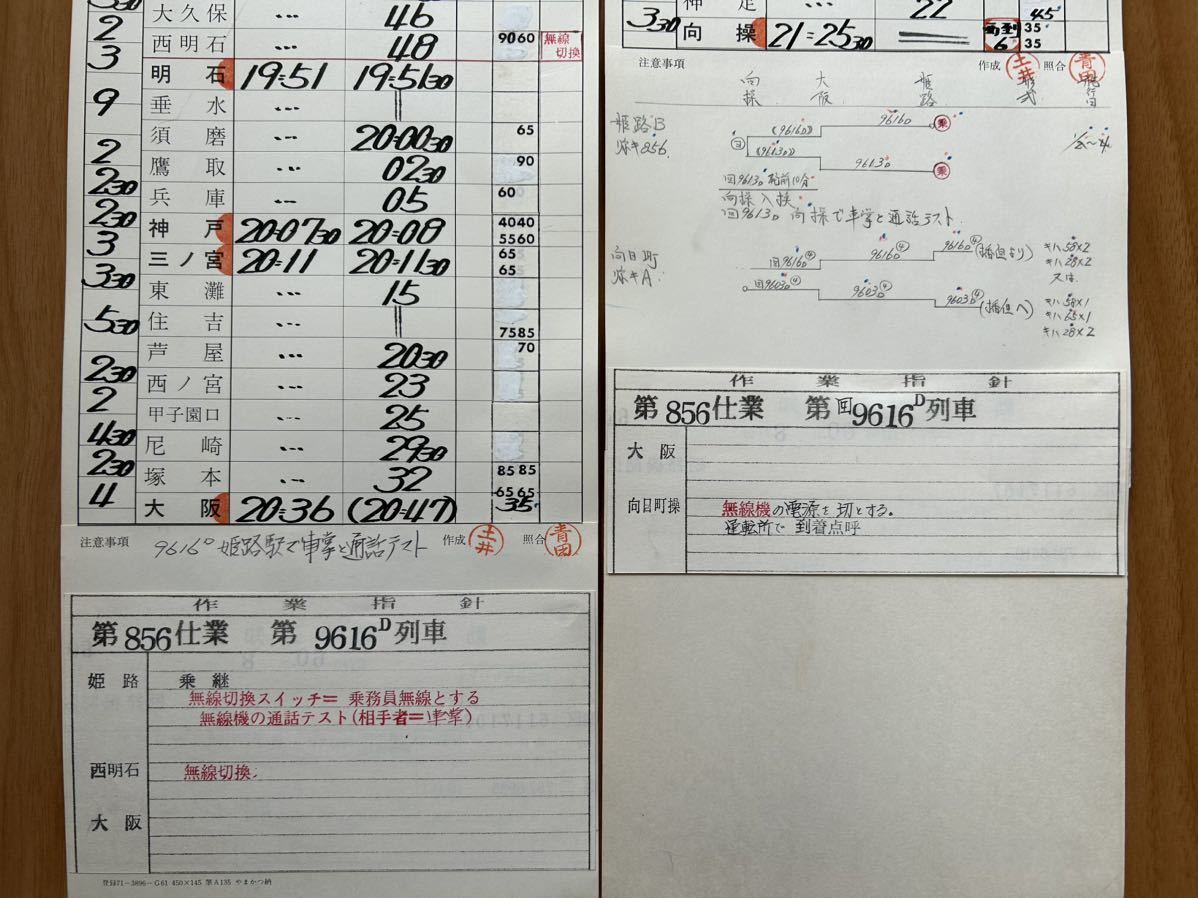 大久保 … 46
2
西明石 … 48 9060 無線切換
3
明石 19=51 19=51 30
9
垂水 … ||
須磨 … 20=00 30 65
2
鷹取 … 02 30 90
2 30
兵庫 … 05 60
2 30
神戸 20=07 30 20=08 4040 5560
3
三ノ宮 20=11 20=11 30 65 65
3 30
東灘 … 15
住吉 … || 7585
5 30
芦屋 … 20 30 70
2 30
西ノ宮 … 23
2
甲子園口 … 25
4 30
尼崎 … 29 30
2 30
塚本 … 32 85 85
4
大阪 20=36 (20=47) 65 65 35
注意事項 9616D 姫路駅で車掌と通話テスト 作成 土井 照合 青田
作業指針
第856仕業 第9616D列車
姫路 乗継
無線切換スイッチ=乗務員無線とする
無線機の通話テスト(相手者=車掌)
西明石 無線切換
大阪
登録71-3896-G61 450×145 第A135 やまかつ納
神足 22 45
3 30
向操 21=25 30 6 35 35
注意事項 作成 土井 照合 青田
向操 大阪 姫路 形式
姫路B
(9616D) 9616D 乗
(9613D) 9613D 乗
回9613D
向操入換
回9613D 向操で車掌と通話テスト
向日町
回9616D④ 9616D④ 9616D④ (播但より) キハ58×2
キハ28×2
又は
回9603D④ 9603D④ 9603D④ (播但へ) キハ58×1
キハ65×1
キハ28×2
作業指針
第856仕業 第回9616D列車
大阪
向日町操 無線機の電源を切とする。
運転所で到着点呼